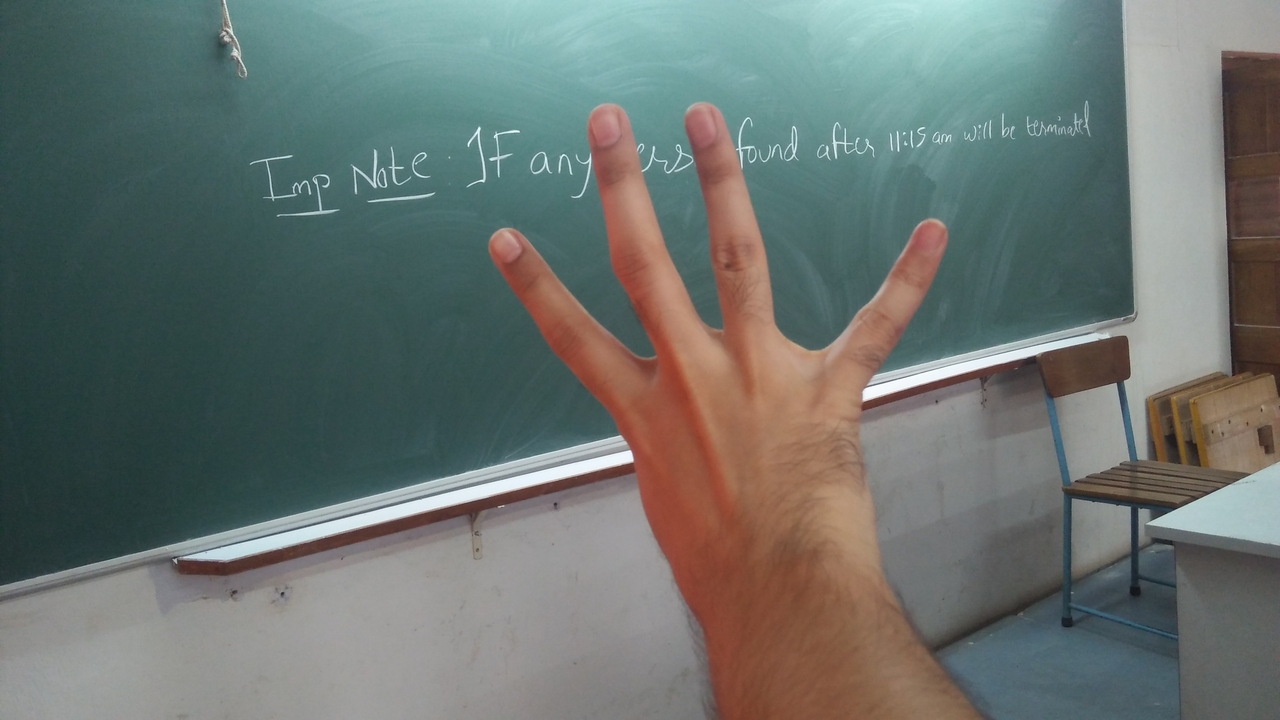 Imp Note : IF any found after 11:15 am will be terminated